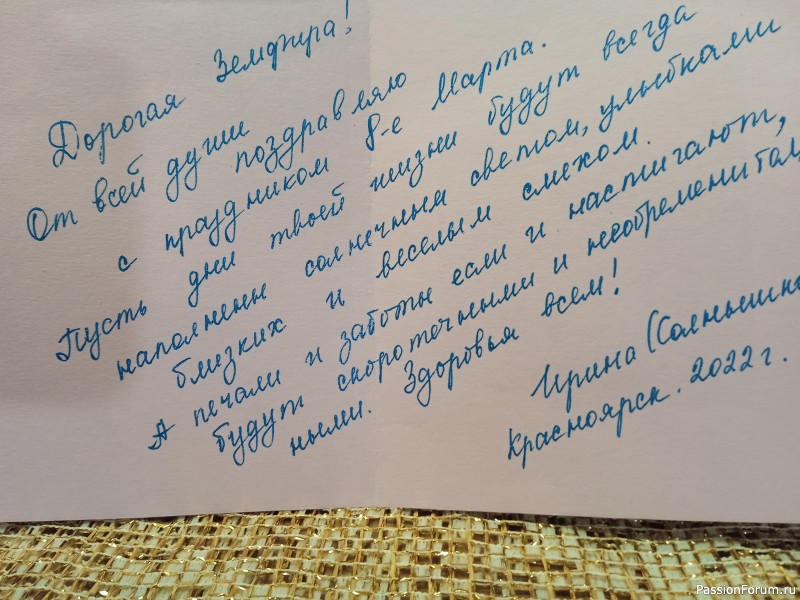 Дорогая Земфира!
От всей души
поздравляю
с праздником 8-е Марта.
Пусть дни твоей жизни будут всегда
наполнены солнечным светом, улыбками
близких и веселым смехом.
А печали и заботы если и настигают,
будут скоротечными и необременитель
ными. Здоровья всем!
Ирина (Солнышко
Красноярск. 2022 г.
PassionForum.ru